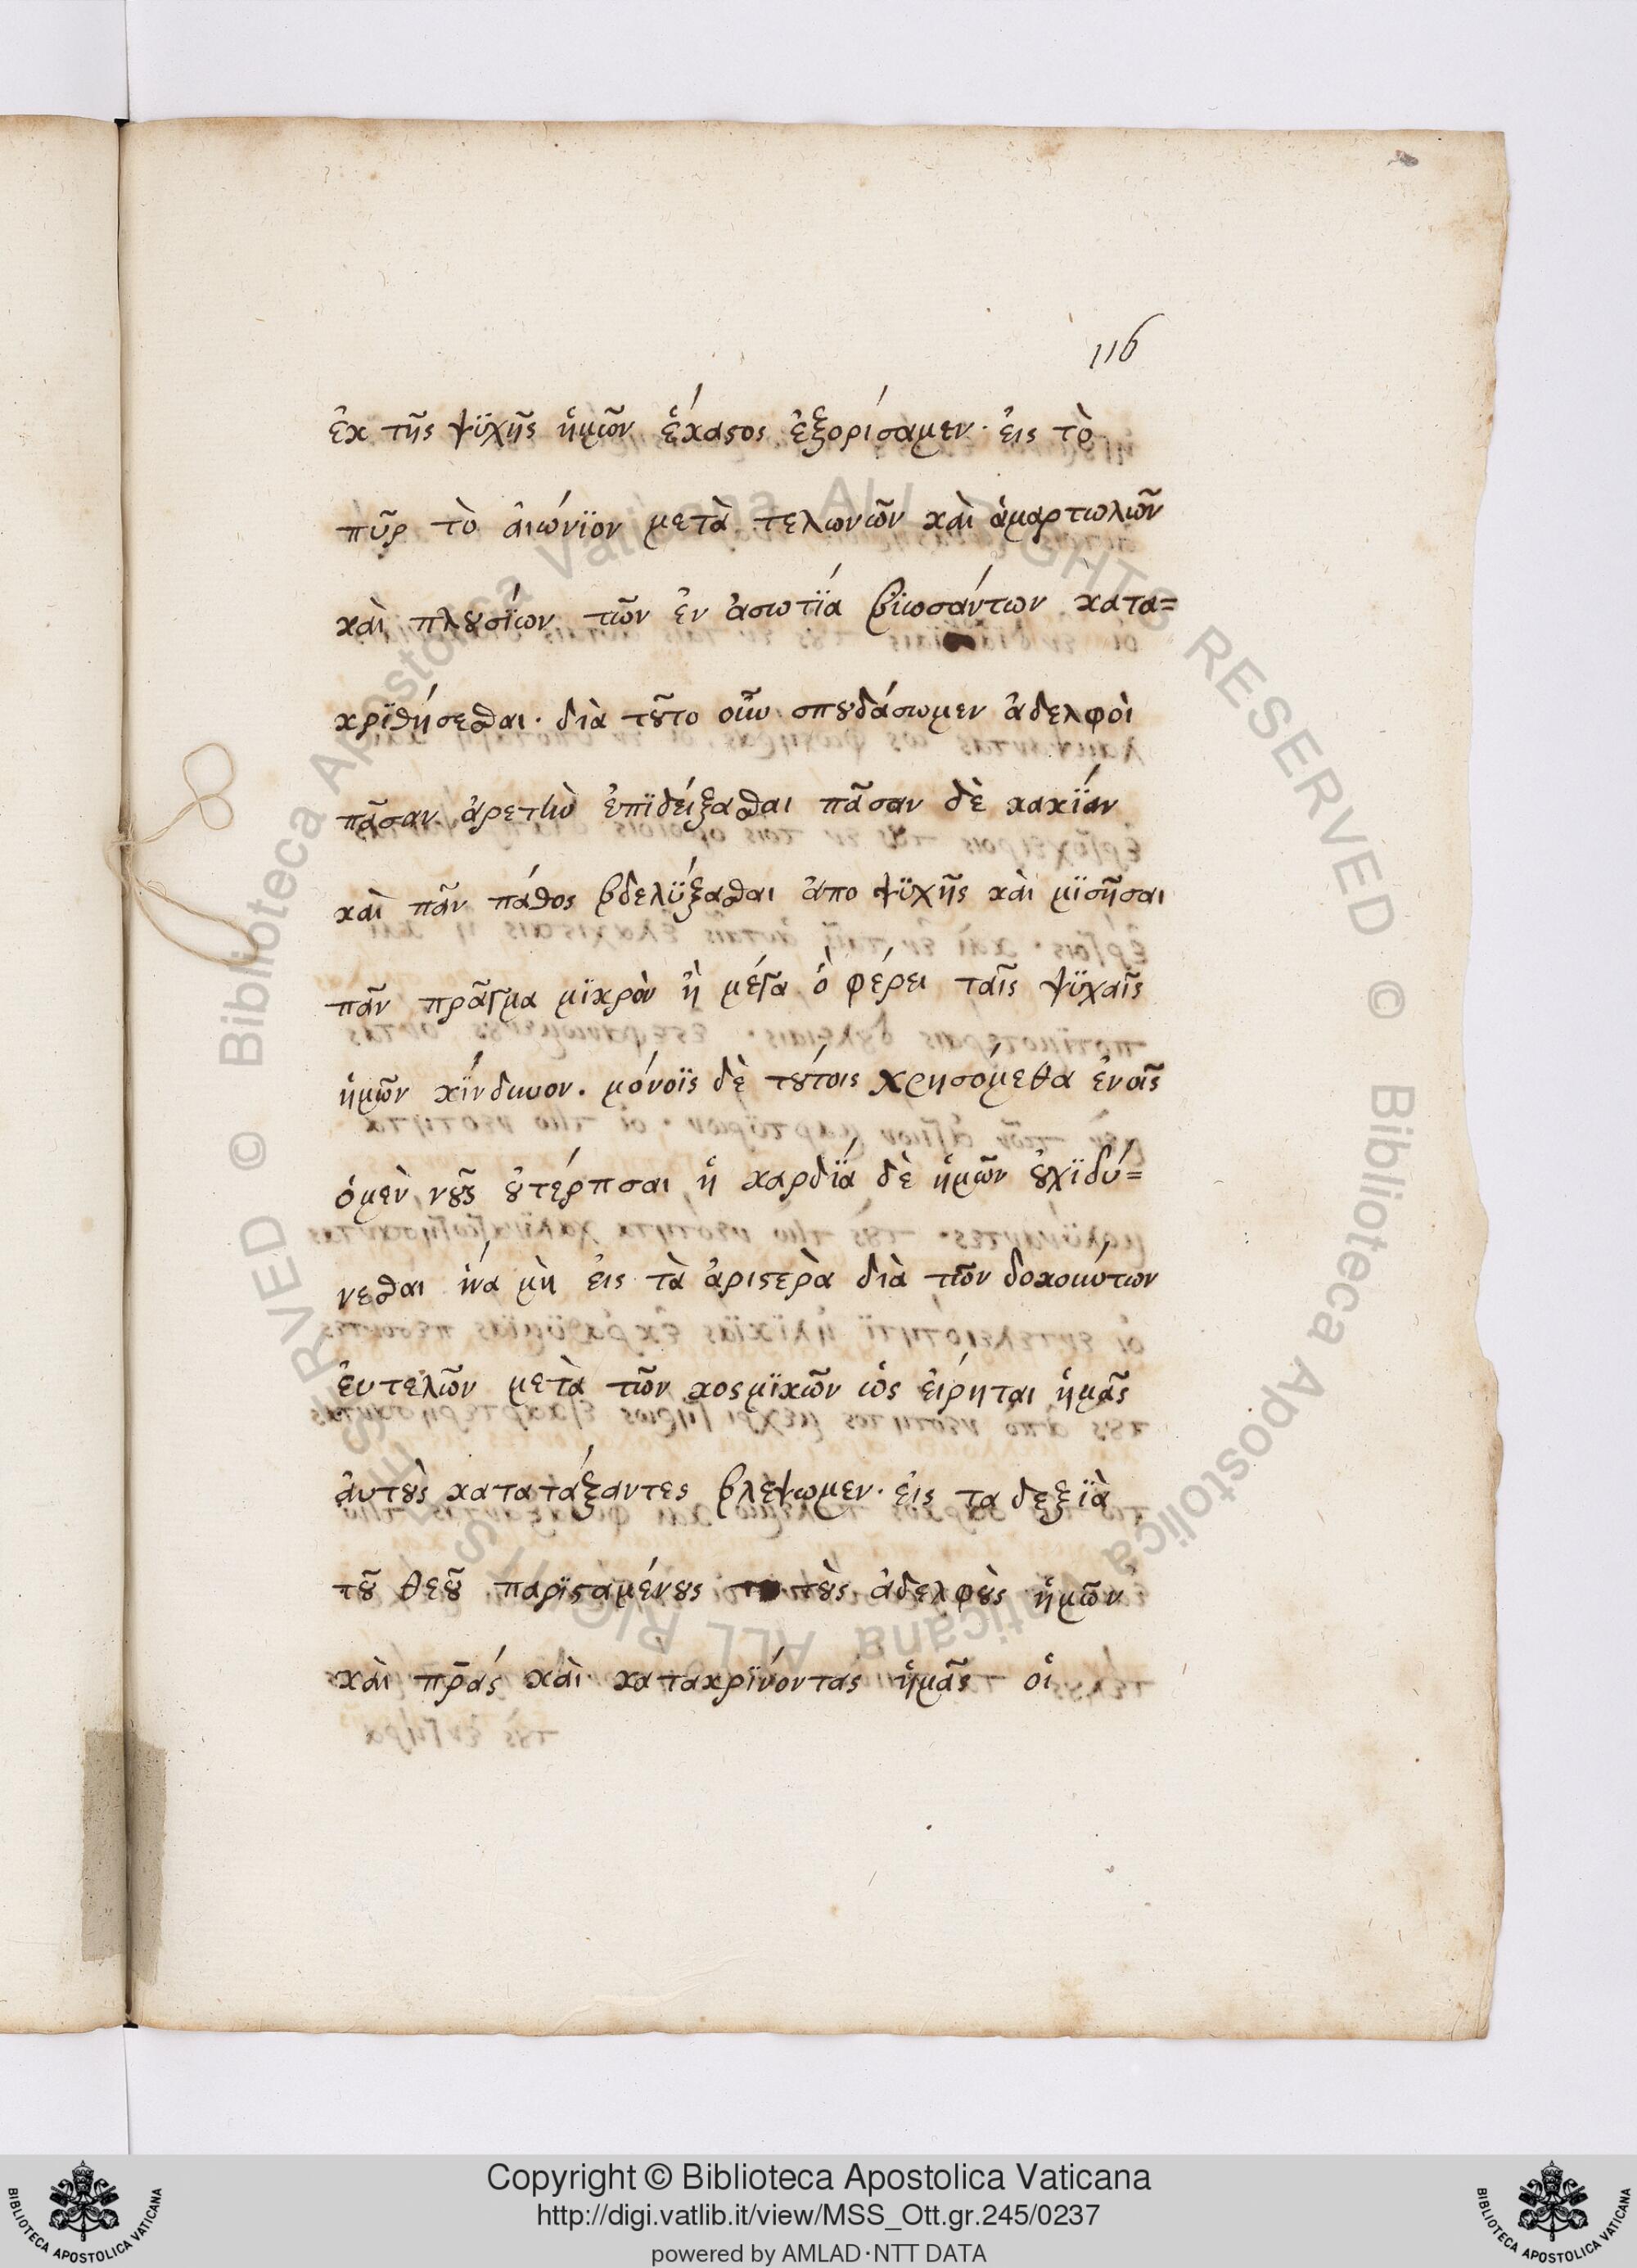 116
ἐκ τῆς ψϋχῆς ἡμῶν ἕκαςος ἐξορίσαμεν· ἐις τὸ
πῦρ τὸ ἀιώνϊον μετὰ τελωνῶν καὶ ἁμαρτωλῶν
καὶ πλȣσίων τῶν ἐν ἀσωτΐα βϊωσάντων κατα=
κρϊθήσεσθαι· διὰ τȣ͂το οὖν σπȣδάσωμεν ἀδελφοὶ
πᾶσαν ἀρετὴν ἐπϊδείξασθαι πᾶσαν δὲ κακΐαν
καὶ πᾶν πάθος βδελΰξασθαι ἀπο ψϋχῆς καὶ μϊσῆσαι
πᾶν πρᾶγμα μϊκρὸν ἢ μέγα ὁ φέρει ταῖς ψϋχαῖς
ἡμῶν κΐνδυνον. μόνοϊς δὲ τȣ́τοις χρησόμεθα ἐν οἷς
ὁμὲν νȣ͂ς ȣ̓ τέρπεται ἡ καρδΐα δὲ ἡμῶν ȣ̓χϊδύ=
νεσθαι ἵνα μὴ ἐις τὰ ἀριςερὰ διὰ τῶν δοκούντων
ἐυτελῶν μετὰ τῶν κοσμϊκῶν ὡς ἐίρηται ἡμᾶς
ἀυτȣ̀ς κατατάξαντες βλεψωμεν· ἐις τα δεξϊὰ
τȣ͂ θεȣ͂ παρϊςαμένȣς τȣ̀ς ἀδελφȣ̀ς ἡμῶν
καὶ πρ̅ας καὶ κατακρΐνοντας ἡμᾶς οἱ
Copyright © Biblioteca Apostolica Vaticana
http://digi.vatlib.it/view/MSS_Ott.gr.245/0237
powered by AMLAD·NTT DATA
BIBLIOTECA APOSTOLICA VATICANA
BIBLIOTECA APOSTOLICA VATICANA
© Biblioteca Apostolica Vaticana ALL RIGHTS RESERVED © Biblioteca Apostolica Vaticana ALL RIGHTS RESERVED